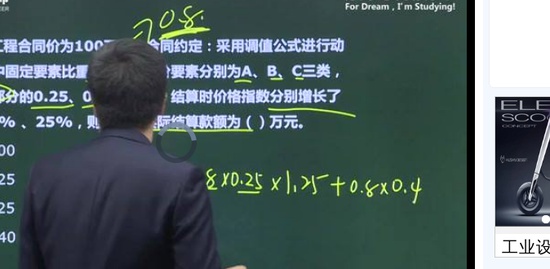 For Dream , I'm Studying!
0.8.
工程合同价为100 合同约定：采用调值公式进行动
固定要素比重 要素分别为A、B、C三类，
部分的0.25、0 结算时价格指数分别增长了
%、25%，则 际结算款额为（ ）万元。
00
25
8×0.25×1.25+0.8×0.4
25
40
ELE
SCO
CONCEPT
工业设